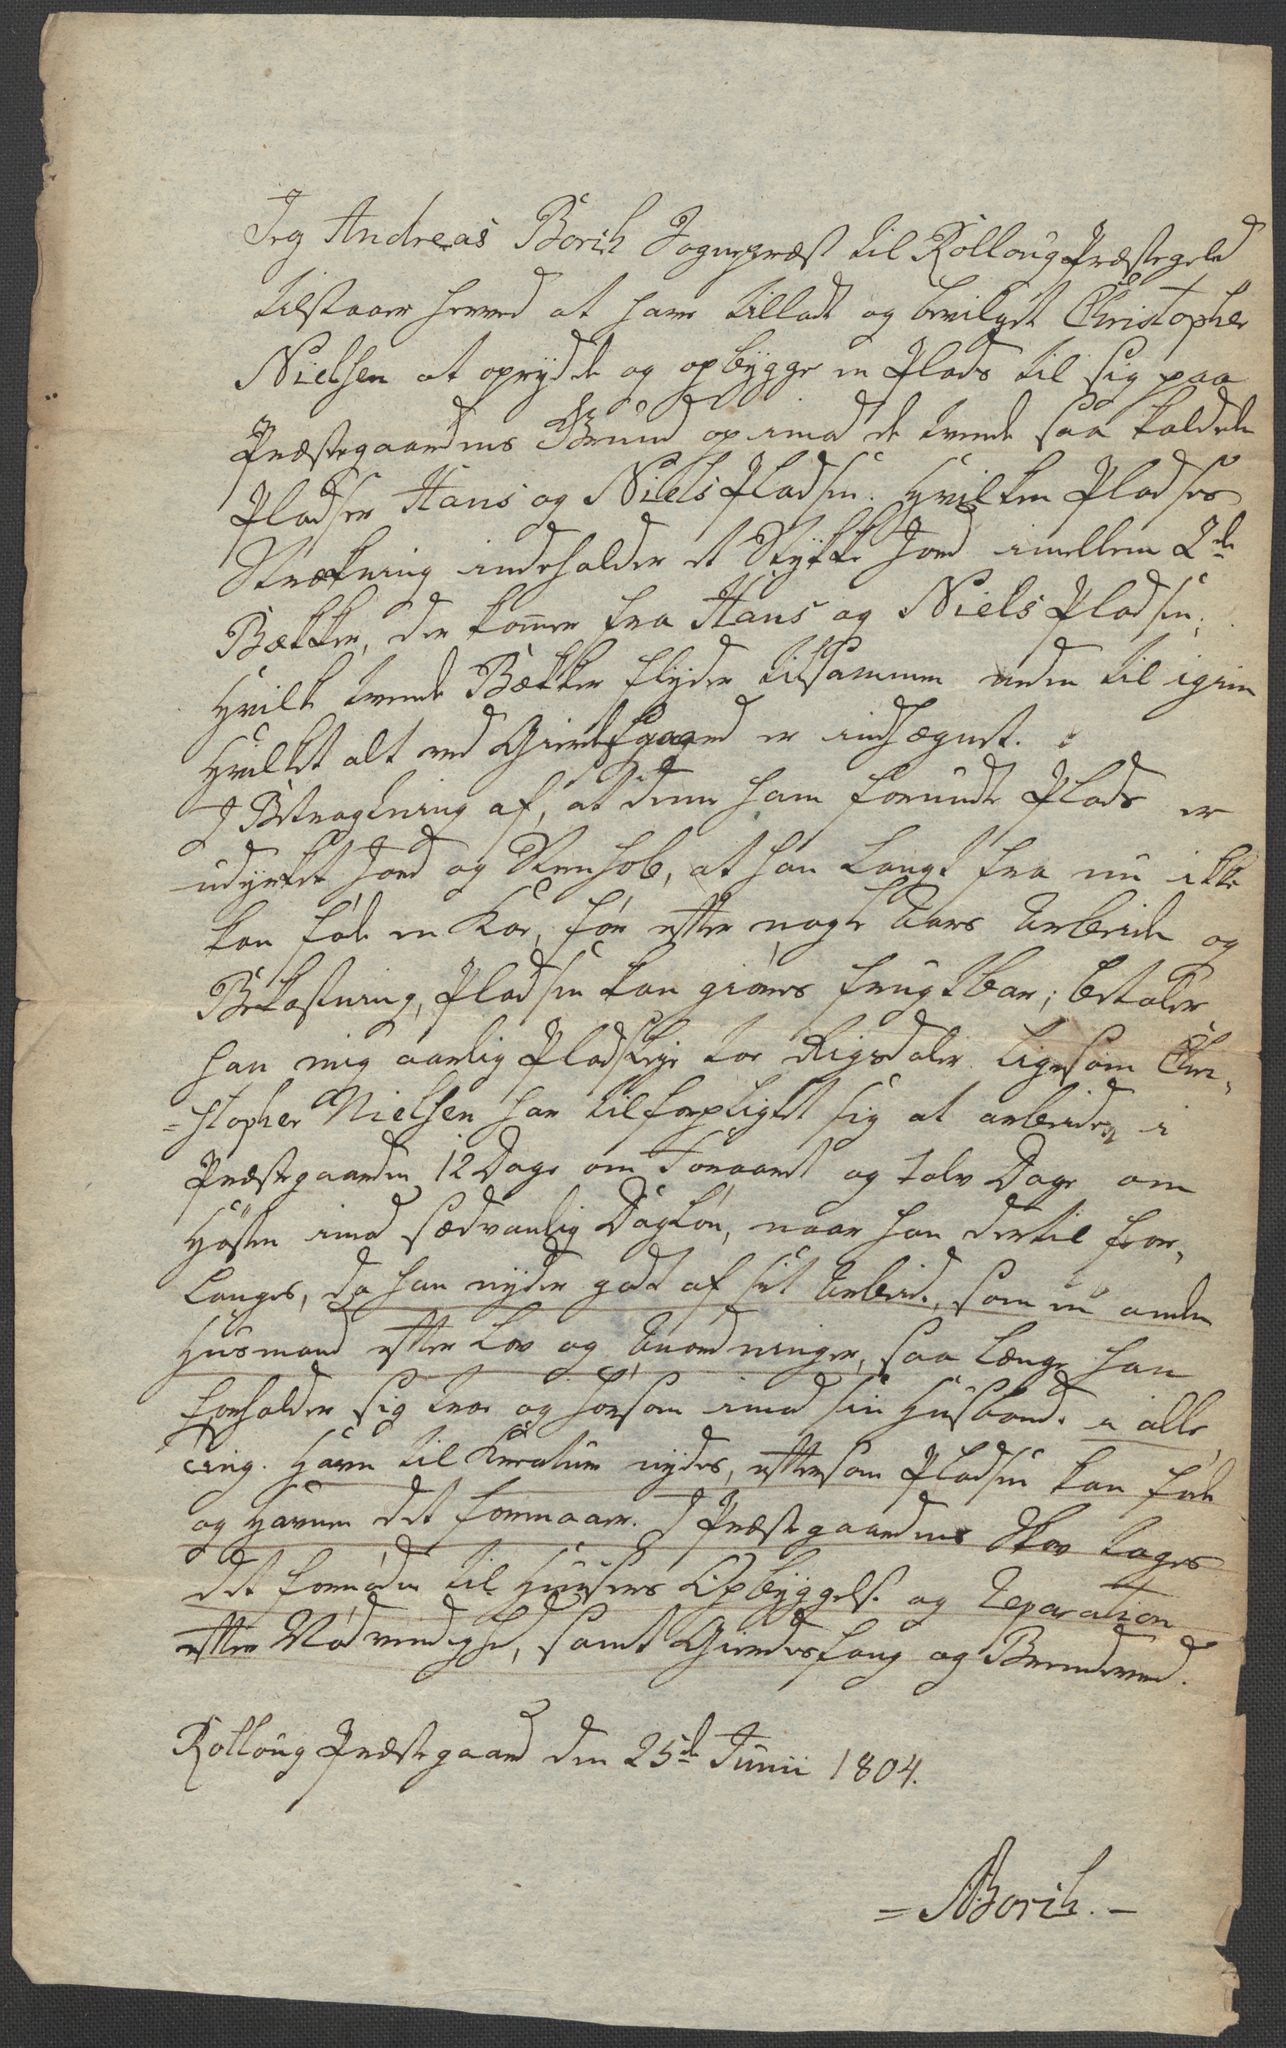 Jeg Andreas Borch Sognepræst til Rolloug Præstegeld
tilstaaer herved at have tilladt og bevilget Christopher
Nielsen at oprydde og opbygge en Plads til sig paa
Præstegaardens Grund op imod de tvende saa kaldede
Pladser Hans og Niels Pladsen. Hvilken Pladses
Strækning indeholder et Stykke Jord imellem 2de
Bækker, der kommer fra Hans og Niels Pladsen;
Hvilke tvende Bækker flyder tilsammen neden til igien
Hvilket alt ved Gierdsgaard er indhægnet.
I Betragtning af, at denne ham forundte Plads er
udyrket Jord og Steenhob, at han langt fra nu ikke
kan føde en Koe, før efter nogle Aars Arbeide og
Bekostning, Pladsen kan giøres frugtbar; betaler
han mig aarlig Pladsleje toe Rigsdaler ligesom Chri-
=stopher Nielsen har tilforpligtet sig at arbeide i
Præstegaarden 12 Dage om Foraaret og tolv Dage om
Høsten imod sædvanlig Dagløn, naar han dertil for-
langes, da han nyder godt af sit Arbeide, som en anden
Husmand efter Lov og Anordninger, saa længe han
forholder sig troe og hørsom imod sin Husbond. i alle
ting. Havn til Kreature nydes, eftersom Pladsen kan føde
og Havnen det formaaer. I Præstegaardens Skov tages
det fornødne til Huusenes Opbyggelse og Reparation
efter Nødvendighed, samt Gierdesfang og Brændeved.
Rolloug Præstegaard den 25de Junii 1804.
= ABorch. -